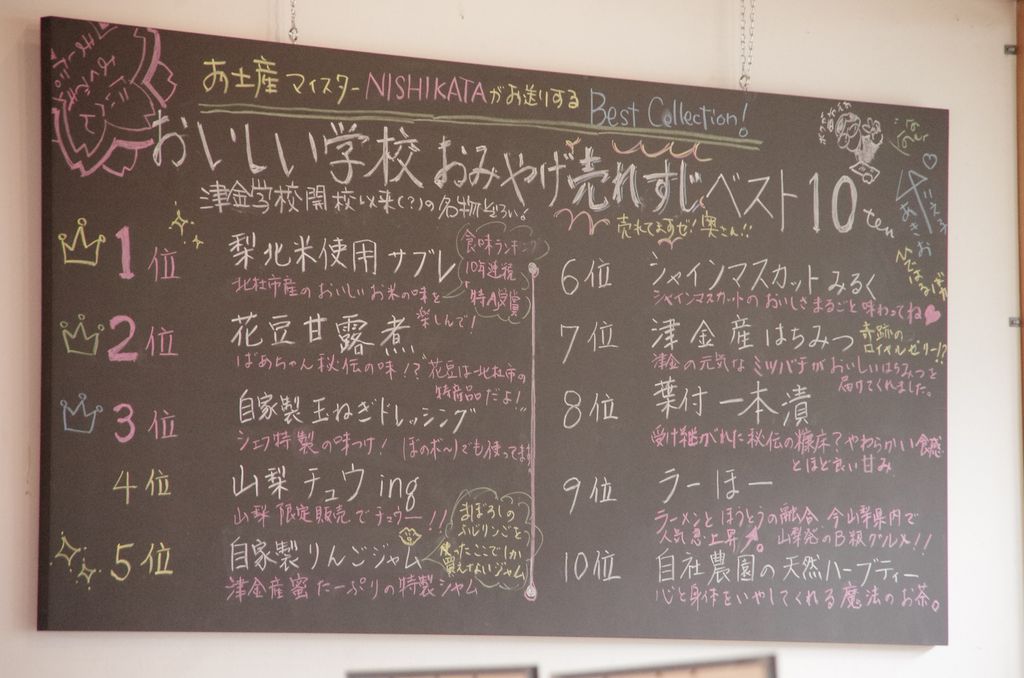 お土産マイスターNISHIKATAがお送りする Best Collection!
おいしい学校おみやげ売れすじベスト10 ten
津金学校開校以来(?)の名物ぞろい。
売れてますぜ!奥さん!!
1位 梨北米使用サブレ
北杜市産のおいしいお米の味を楽しんで!
食味ランキング
10年連続
特A受賞
2位 花豆甘露煮
ばあちゃん秘伝の味!?花豆は北杜市の
特産品だよ!
3位 自家製玉ねぎドレッシング
シェフ特製の味つけ! ぼのボ〜ノでも使ってます
4位 山梨チュウing
山梨限定販売でチュウー!!
5位 自家製りんごジャム
津金産蜜たーっぷりの特製ジャム
まぼろしの
ふじりんごをつ
かったここでしか
買えないジャム
6位 シャインマスカットみるく
シャインマスカットのおいしさまるごと味わってね♥
7位 津金産はちみつ
奇跡の
ロイヤルゼリー!?
津金の元気なミツバチがおいしいはちみつを
届けてくれました。
8位 葉付一本漬
受け継がれた秘伝の糠床?やわらかい食感
とほど良い甘み
9位 ラーほー
ラーメンとほうとうの融合 今山梨県内で
人気急上昇 山梨発のB級グルメ!!
10位 自社農園の天然ハーブティー
心と身体をいやしてくれる魔法のお茶。